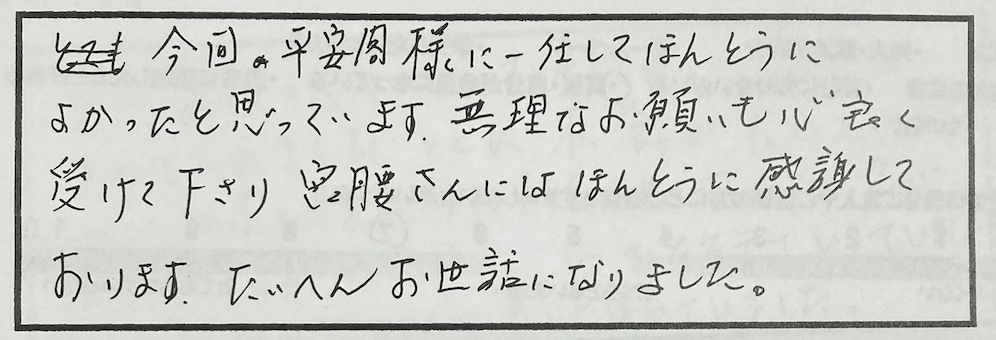 今回。平安閣様に一任してほんとうに
よかったと思っています。無理なお願いも心良く
受けて下さり 宮腰さんにはほんとうに感謝して
おります。たいへんお世話になりました。